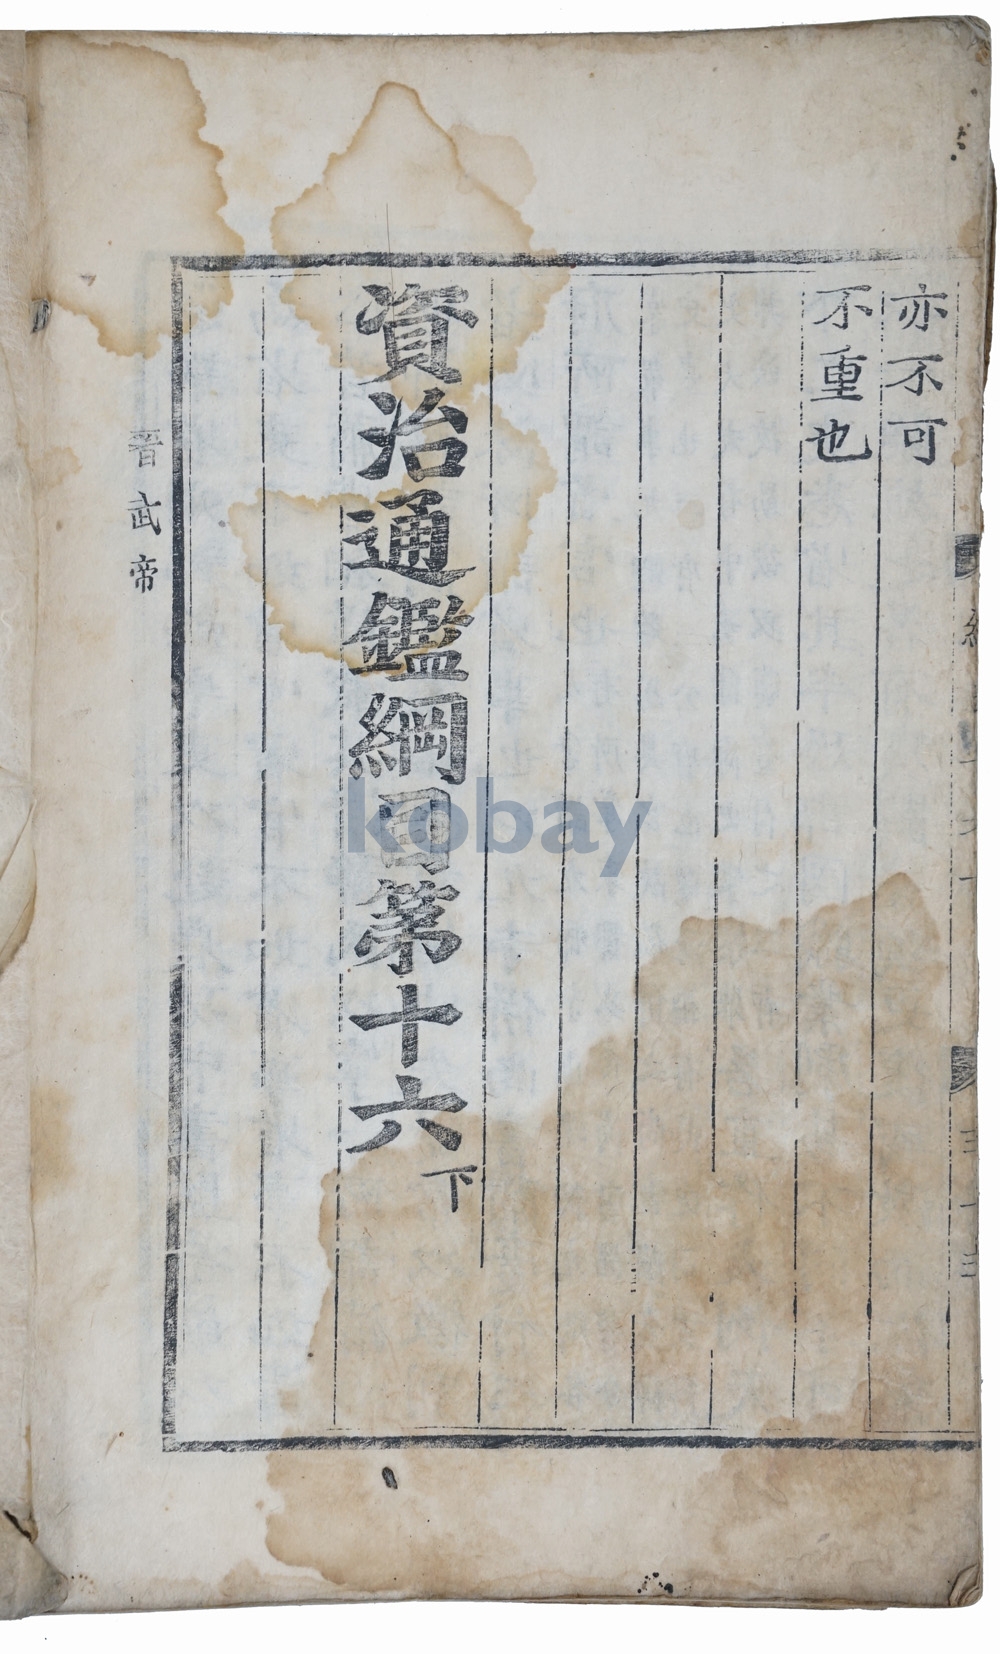 亦不可
不重也
資治通鑑綱目第十六下
晋武帝
kobay